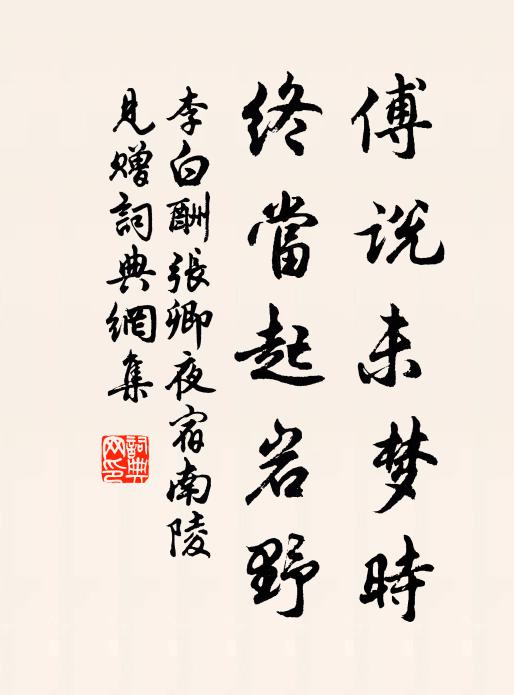 傅说未梦時
終當起岩野
李白酬張卿夜宿南陵
見贈詞典網集
詞典网印